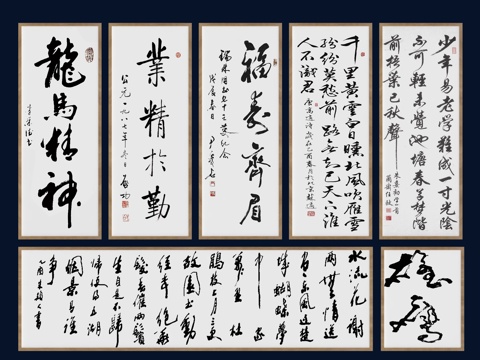 龍馬精神
業精於勤
公元一九八七年冬日 啟功
福壽齊眉
戊辰春日
千里黃雲白日曛北風吹雁雪
紛紛莫愁前路無知己天下誰
人不識君 唐高適詩
少年易老學難成一寸光陰
不可輕未覺池塘春草夢階
前梧葉已秋聲
水流花謝
兩無情送
盡東風過楚
城蝴蝶夢
中家
萬里杜
鵑枝上月三更
故園書動
經年絕華
髮春催兩鬢
生自是不歸
歸便得五湖
煙景有誰
爭
雄鷹